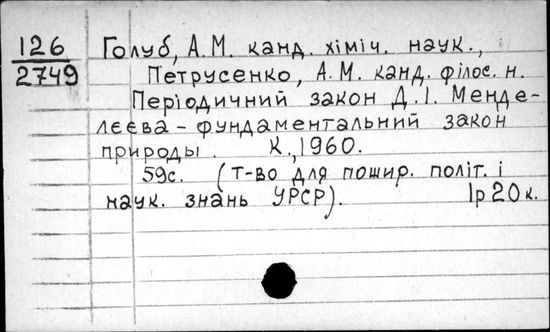 126
2749
Голуб, А.М. канд. хіміч. наук.,
Петрусенко, А.М. канд. філос. н.
Періодичний закон Д.І. Менде-
лєєва – фундаментальний закон
природы. К., 1960.
59с. (Т-во для пошир. політ. і
наук. знань УРСР). 1р20к.